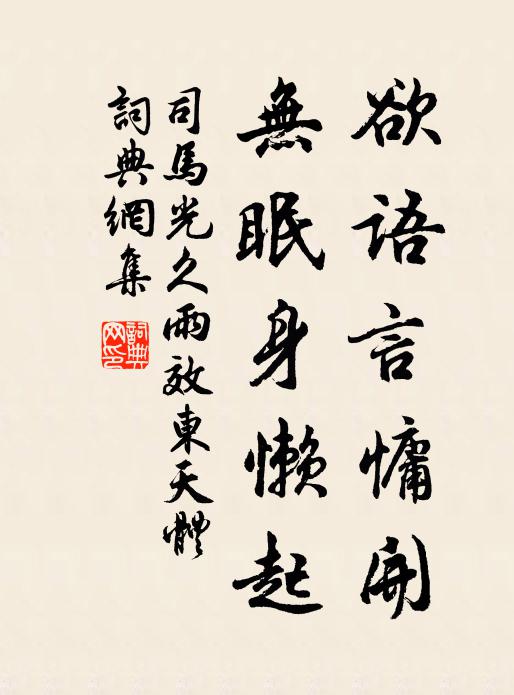 欲語言慵開
無眠身懶起
司馬光久雨效東天體
詞典網集
詞典
网印